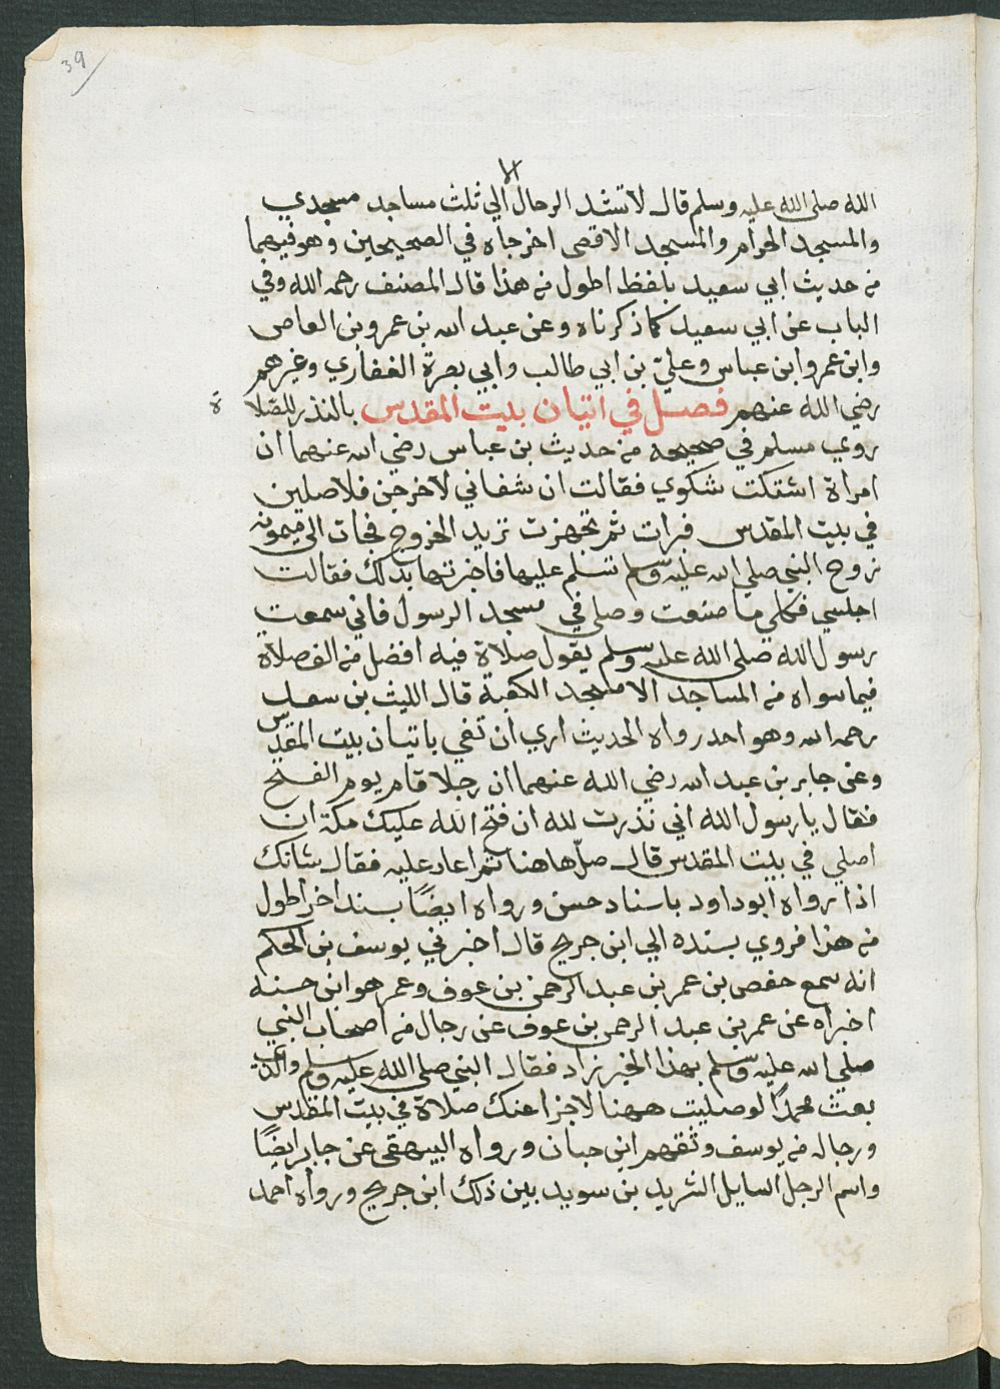 39
الا
الله صلى الله عليه وسلم قال لا تشد الرحال الي ثلث مساجد مسجدي
والمسجد الحرام والمسجد الاقصى اخرجاه في الصحيحين وهو فيهما
من حديث ابي سعيد بلفظ اطول من هذا قال المصنف رحمه الله وفي
الباب عن ابي سعيد كما ذكرناه وعن عبد الله بن عمرو بن العاص
وابن عمر وابن عباس وعليّ بن ابي طالب وابي بصرة الغفاري وغيرهم
رضي الله عنهم فصل في اتيان بيت المقدس بالنذر للصلا ة
روي مسلم في صحيحه من حديث بن عباس رضي الله عنهما ان
امراة اشتكت شكوي فقالت ان شفاني لاخرجن فلاصلين
في بيت المقدس فبرات ثم تجهزت تريد الخروج فجات الى ميمونه
زوج النبي صلي الله عليه وسلم تسلم عليها فاخبرتها بذلك فقالت
اجلسي فكلي ما صنعت وصلي في مسجد الرسول فاني سمعت
رسول الله صلى الله عليه وسلم يقول صلاة فيه افضل من الف صلاة
فيما سواه من المساجد الا مسجد الكعبة قال الليث بن سعد
رحمه الله وهو احد رواه الحديث اري ان تفي باتيان بيت المقدس
وعن جابر بن عبد الله رضي الله عنهما ان رجلا قام يوم الفتح
فقال يا رسول الله اني نذرت لله ان فتح الله عليك مكة ان
اصلي في بيت المقدس قال صلّ هاهنا ثم اعاد عليه فقال شانك
اذا رواه ابو داود باسناد حسن ورواه ايضًا بسند اخر اطول
من هذا فروي بسنده الي ابن جريج قال اخبرني يوسف بن الحكم
انه سمع حفص بن عمر بن عبد الرحمن بن عوف وعمر هو ابن حسنه
اخبراه عن عمر بن عبد الرحمن بن عوف عن رجال من اصحاب النبي
صلي الله عليه وسلم بهذا الخبر زاد فقال النبي صلى الله عليه وسلم والذي
بعث محمدًا لو صليت ههنا لاجزا عنك صلاة في بيت المقدس
ورجاله من يوسف وثقهم ابن حبان ورواه البيهقي عن جابر ايضًا
واسم الرجل السايل الشريد بن سويد بين ذلك ابن جريج ورواه احمد